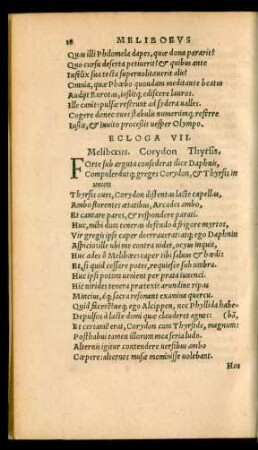 28 MELIBOEVS
Quas illi Philomela dapes, quæ dona pararit?
Quo cursu deserta petiuerit? & quibus ante
Infœlix sua tecta superuolitauerit alis?
Omnia, quæ Phœbo quondam meditante beatus
Audijt Eurotas, iussitq; ediscere lauros.
Ille canit: pulsæ referunt ad sydera ualles.
Cogere donec oues stabulis numerumq; referre
Iussit, & inuito processit uesper Olympo.
ECLOGA VII.
Melibœus. Corydon Thyrsis.
Forte sub arguta consederat ilice Daphnis,
Compulerántq; greges Corydon, & Thyrsis in
unum
Thyrsis oues, Corydon distentas lacte capellas,
Ambo florentes ætatibus, Arcades ambo,
Et cantare pares, & respondere parati.
Huc, mihi dum teneras defendo à frigore myrtos,
Vir gregis ipse caper deerrauerat: atq; ego Daphnin
Aspicio: ille ubi me contra uidet, ocyus inquit,
Huc ades ô Melibœe: caper tibi saluus & hœdi:
Et, si quid cessare potes, requiesce sub umbra.
Huc ipsi potum uenient per prata iuuenci.
Hic uirides tenera prætexit arundine ripas
Mincius, éq; sacra resonant examina quercu.
Quid facerém? neq; ego Alcippen, nec Phyllida habe-
Depulsos à lacte domi quæ clauderet agnos: (bā,
Et certamē erat, Corydon cum Thyrside, magnum:
Posthabui tamen illorum mea seria ludo.
Alternis igitur contendere uersibus ambo
Cœpere: alternos musæ meminisse uolebant.
Hos